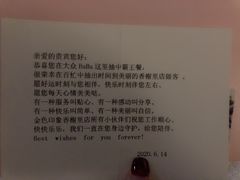 亲爱的贵宾您好:
恭喜您在大众 BaBa 这里抽中霸王餐。
很荣幸在百忙中抽出时间到美丽的香榭里店做客。
愿好运时刻与您相伴,快乐时刻伴您左右。
愿您每天心情美美哒。
有一种服务叫贴心,有一种感动叫分享。
有一种简单叫幸福,有一种美丽叫自信。
金色印象香榭里店所有小伙伴们祝您工作顺心,
快快乐乐。我们一直在您身边守护,给您陪伴。
Best wishes for you forever!
2020.6.14